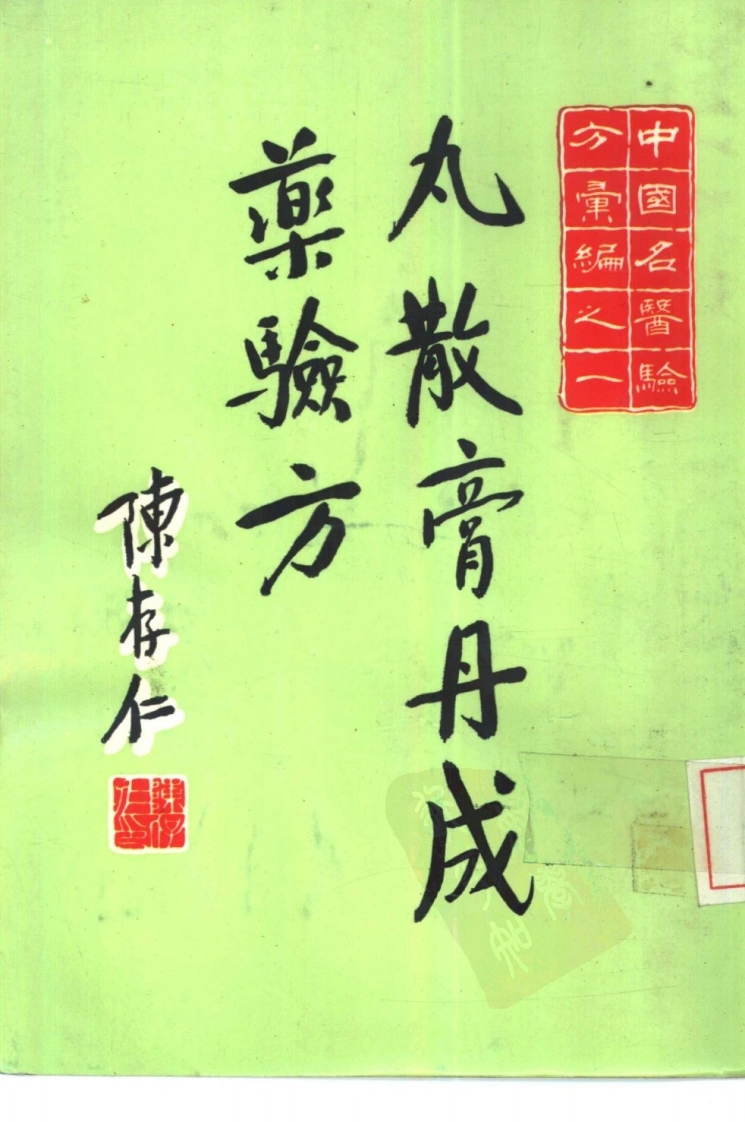 中國名醫驗
方彙編之一
丸散膏丹成
藥驗方
陳存仁